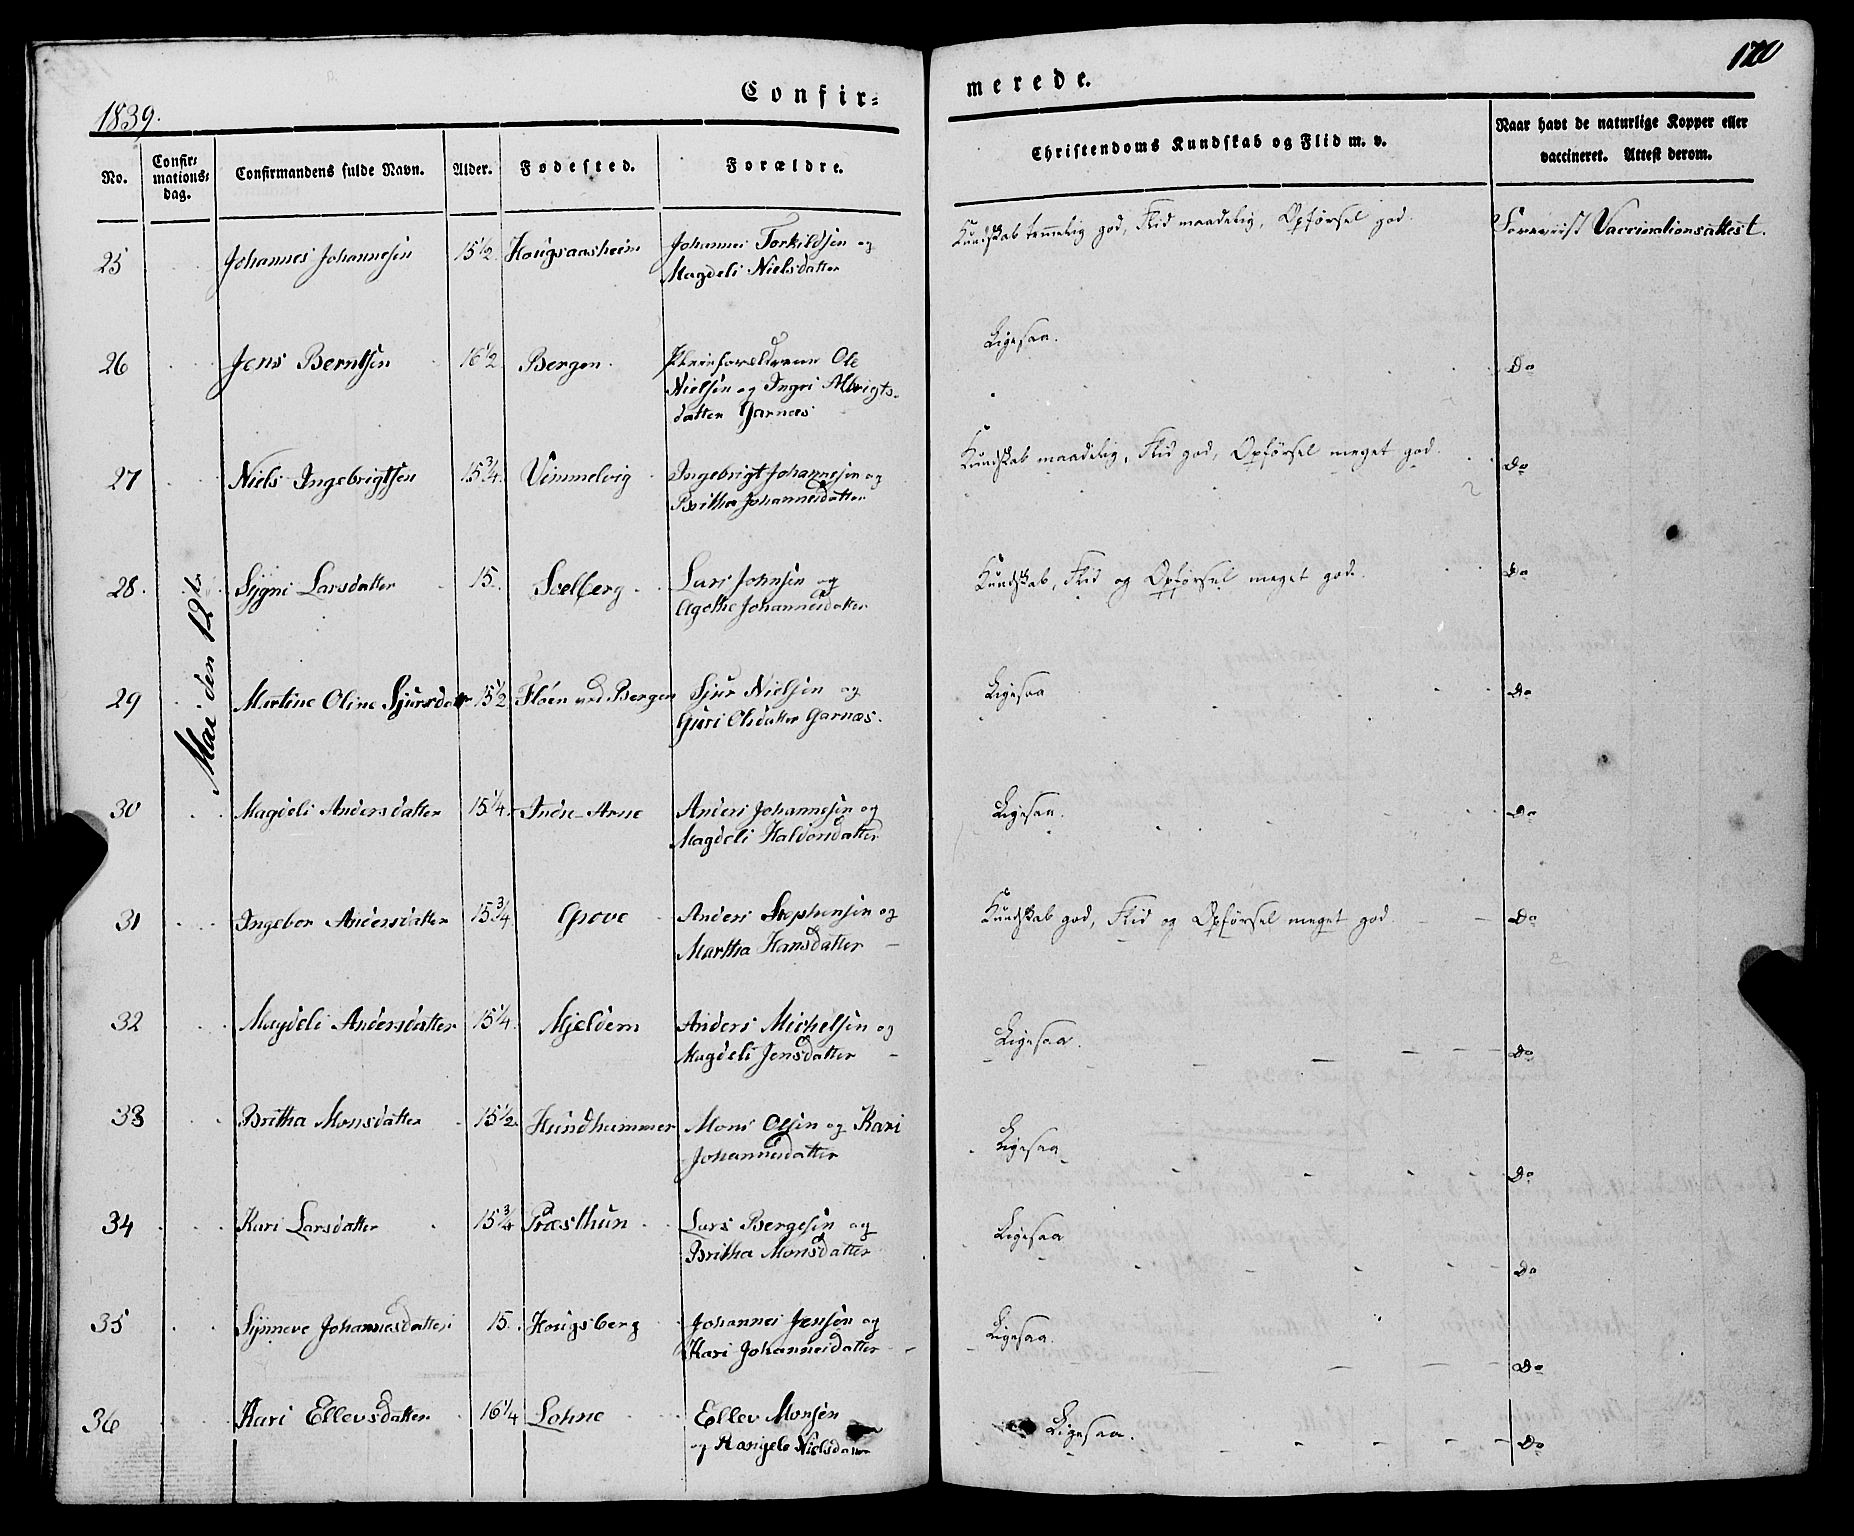 170
Confir=
merede.
1839.
No.
Confir=
mations=
dag.
Confirmandens fulde Navn.
Alder.
Fødested.
Forældre.
Christendoms Kundskab og Flid m. v.
Naar havt de naturlige Kopper eller
vaccineret. Attest derom.
Mai den 12te
25 Johannes Johannesen 15 1/2 Hougsaasheim Johannes Torkildsen og
Magdeli Nielsdatter
Kundskab temmelig god, Flid maadelig, Opførsel god. Foreviist Vaccinationsattest.
26 Jens Berntsen 16 1/2 Bergen Pleieforældrene Ole
Nielsen og Ingri Albrigts-
datter Garnæs
Ligesaa. Do
27 Niels Ingebrigtsen 15 3/4 Vimmelvig Ingebrigt Johannesen og
Britha Johannesdatter
Kundskab maadelig, Flid god, Opførsel meget god. Do
28. Sygni Larsdatter 15. Lars Johnsen og
Agethe Johannesdatter
Kundskab, Flid og Opførsel meget god. Do
29 Martine Oline Sjursdatter 15 1/2 Fløen ved Bergen Sjur Nielsen og
Guri Olsdatter Garnæs.
Ligesaa Do
30 Magdeli Andersdatter 15 1/4 Indre-Arne Anders Johannesen og
Magdeli Haldorsdatter
Ligesaa. Do
31 Ingebor Andersdatter 15 3/4 Grove Anders Stephensen og
Martha Hansdatter
Kundskab god, Flid og Opførsel meget god. Do
32 Magdeli Andersdatter 15 1/4 Mjeldem Anders Michelsen og
Magdeli Jensdatter
Ligesaa. Do
33 Britha Monsdatter 15 1/2 Hundhammer Mons Olsen og Kari
Johannesdatter
Ligesaa Do
34 Kari Larsdatter 15 3/4 Præsthun Lars Bergesen og
Britha Monsdatter
Ligesaa Do
35 Synneve Johannesdatter 15. Hougsberg Johannes Jensen og
Kari Johannesdatter
Ligesaa. Do
36 Kari Ellevsdatter 16 1/4 Lohne Ellev Monsen
og Rangele Nielsdatter
Ligesaa. Do